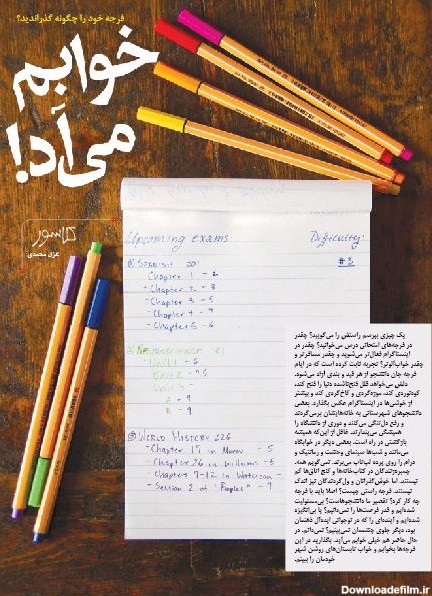 فرجه خود را چگونه گذراندید؟
خوابم
می‌آد!
کلاسور
غزل محمدی
Upcoming exams
Difficulty:
① SPANISH 201
#3
Chapter 1 - 2
- Chapter 2 - 3
- Chapter 3 - 5
- Chapter 4 - 7
- Chapter 5 - 6
A - 9
B - 9
③ WORLD HISTORY 226
- Chapter 17 in Maner - 5
- Chapter 26 in Williams - 5
- Chapters 7-12 in Waterson -
- Section 2 of "Peoples" - 9
یک چیزی بپرسم راستش را می‌گویید؟ چقدر
در فرجه‌های امتحانی درس می‌خوانید؟ چقدر در
اینستاگرام فعال‌تر می‌شوید و چقدر مسافرتر و
چقدر خواب‌آلوتر؟ تجربه ثابت کرده است که در ایام
فرجه جان دانشجو از هر قید و بندی آزاد می‌شود.
دلش می‌خواهد قلل فتح‌ناشده دنیا را فتح کند،
کوه‌نوردی کند، موزه‌گردی و کاخ‌گردی کند و بیشتر
از خوشی‌ها در اینستاگرام عکس بگذارد. بعضی
دانشجوهای شهرستانی به خانه‌هایشان برمی‌گردند
و رفع دل‌تنگی می‌کنند و دوری از دانشگاه را
همیشگی می‌پندارند. غافل از این‌که همیشه
بازگشتی در راه است. بعضی دیگر در خوابگاه
می‌مانند و شب‌ها سینمای وحشت و رمانتیک و
درام را روی پرده شب‌تاب می‌برند. نمی‌گویم همه،
چمبره‌زنندگان در کتاب‌خانه‌ها و کنج اتاق‌ها کم
نیستند. اما خوش‌گذرانان و ول‌گردندگان نیز اندک
نیستند. فرجه راستی چیست؟ اصلا باید با فرجه
چه کار کرد؟ تقصیر ما دانشجوهاست؟ بی‌مسئولیت
شده‌ایم و قدر فرصت‌ها را نمی‌دانیم؟ یا بی‌انگیزه
شده‌ایم و آینده‌ای را که در نوجوانی ایده‌آل ذهنمان
بود، دیگر جلوی چشممان نمی‌بینیم؟ نمی‌دانم. در
حال حاضر هم خیلی خوابم می‌آید. بگذارید در این
فرجه‌ها بخوابم و خواب تابستان‌های روشن شهر
خودمان را ببینم.
Downloadefilm.ir